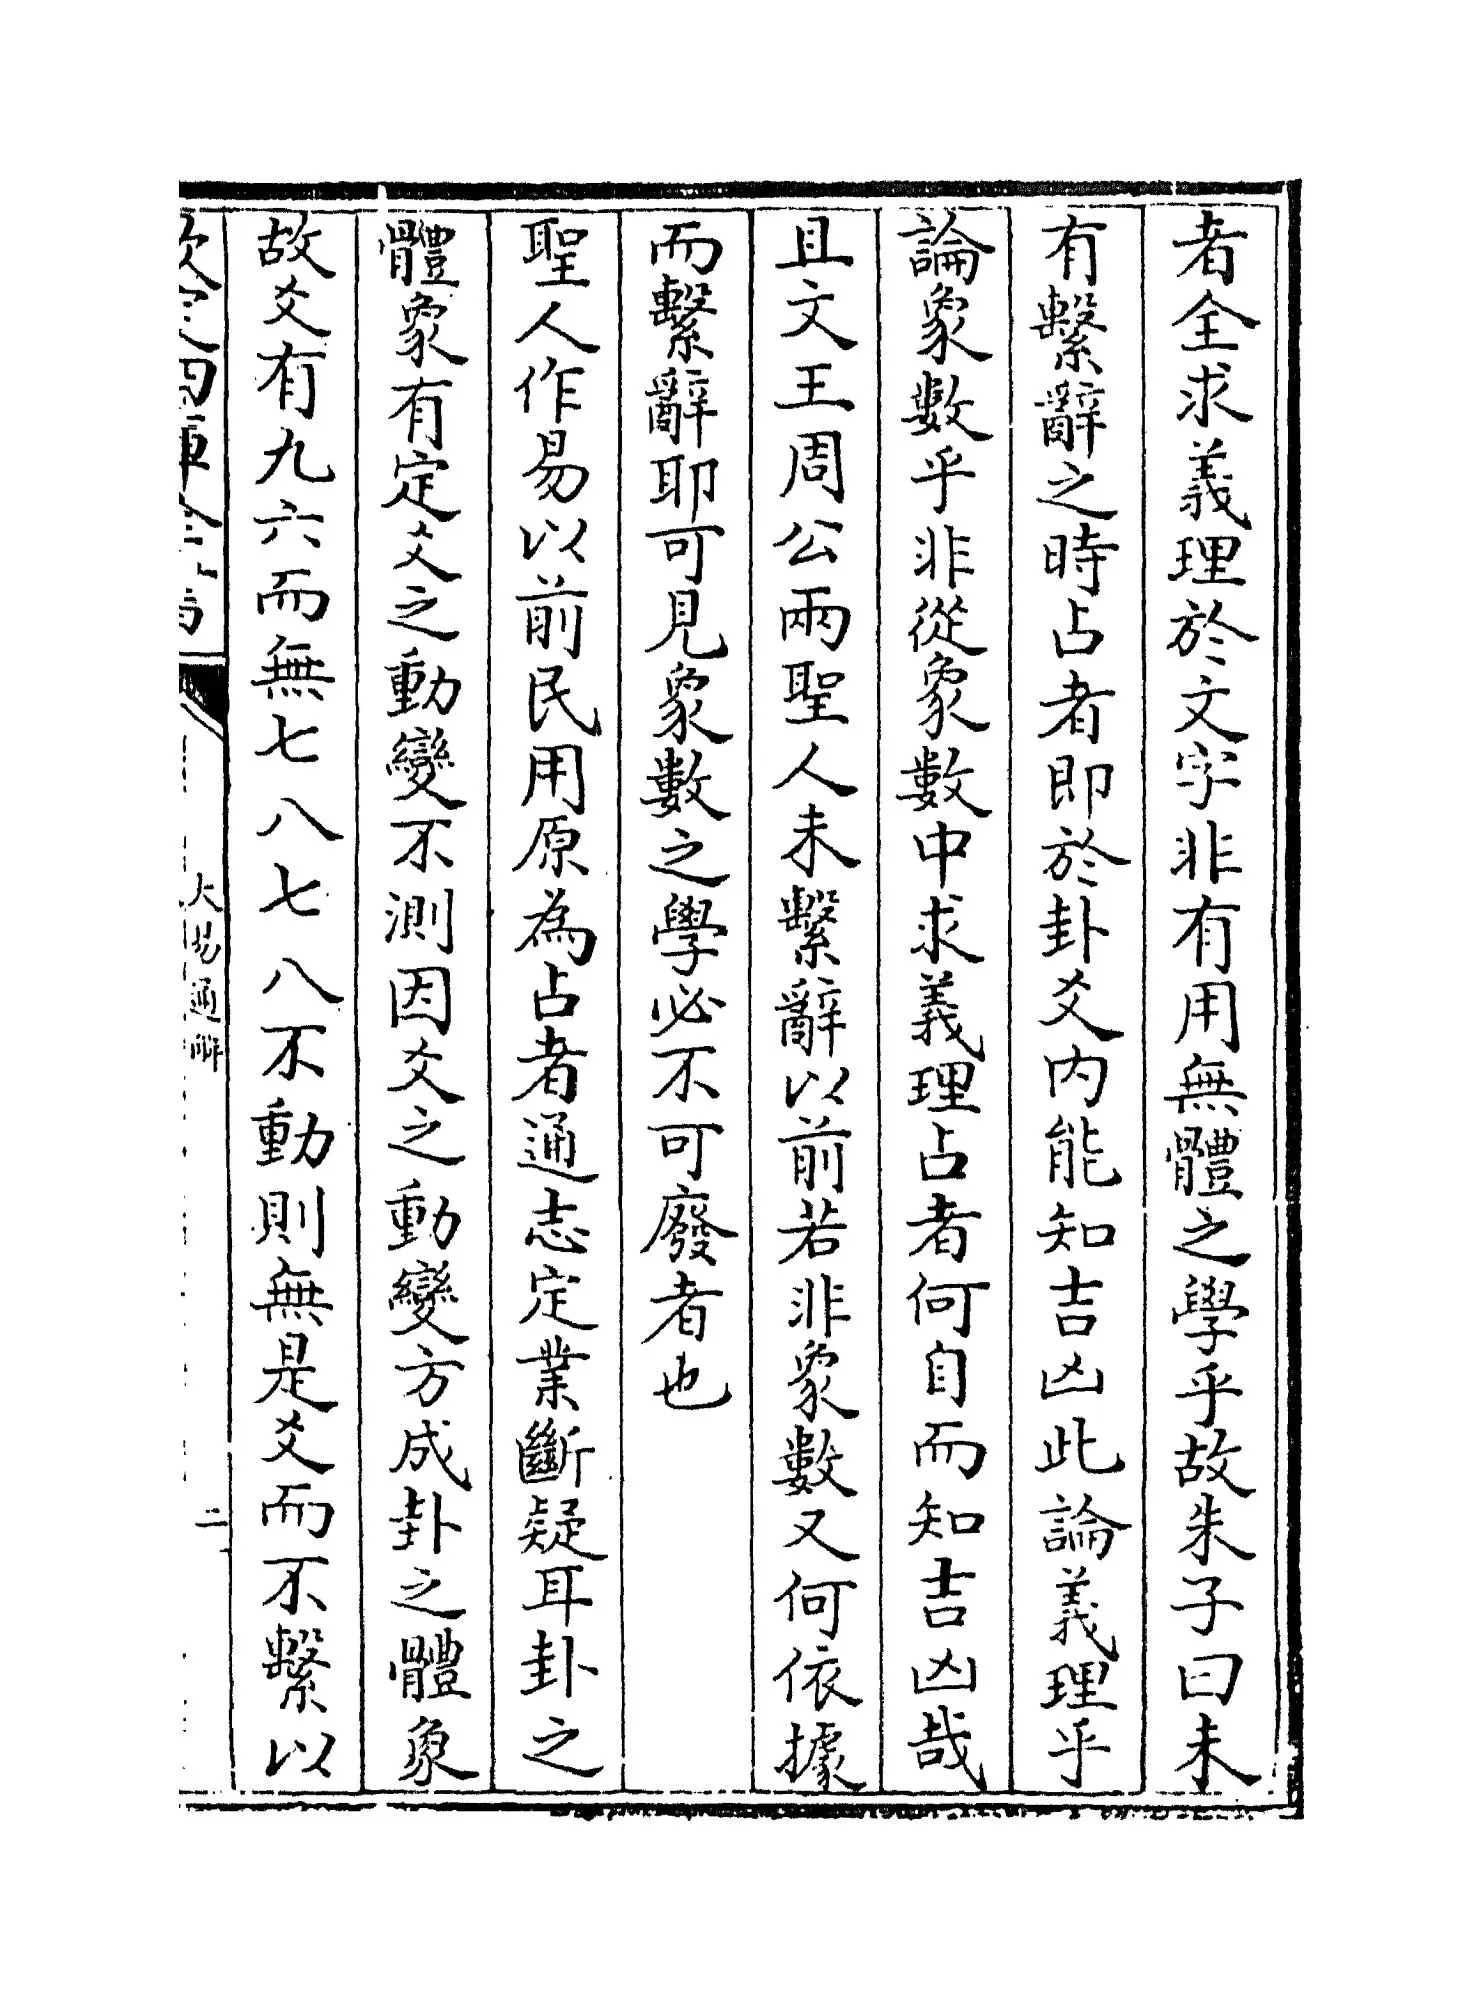 者全求義理於文字非有用無體之學乎故朱子曰未
有繫辭之時占者即於卦爻內能知吉凶此論義理乎
論象數乎非從象數中求義理占者何自而知吉凶哉
且文王周公兩聖人未繫辭以前若非象數又何依據
而繫辭耶可見象數之學必不可廢者也
聖人作易以前民用原為占者通志定業斷疑耳卦之
體象有定爻之動變不測因爻之動變方成卦之體象
故爻有九六而無七八七八不動則無是爻而不繫以
欽定四庫全書
大易通解
二